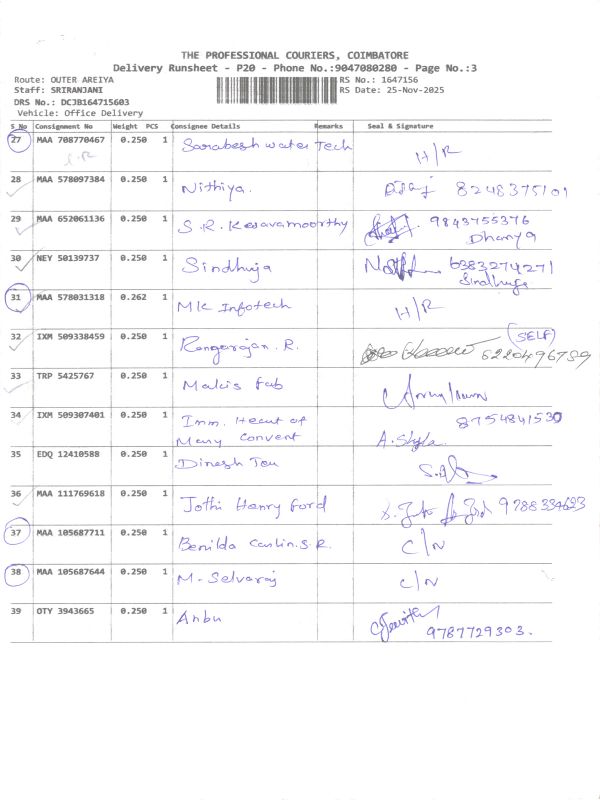 THE PROFESSIONAL COURIERS, COIMBATORE
Delivery Runsheet - P20 - Phone No.:9047080280 - Page No.:3
Route: OUTER AREIYA
RS No.: 1647156
Staff: SRIRANJANI
RS Date: 25-Nov-2025
DRS No.: DCJB164715603
Vehicle: Office Delivery
S No Consignment No Weight PCS Consignee Details Remarks Seal & Signature
27 MAA 708770467 0.250 1 Sarabesh water Tech H/R
28 MAA 578097384 0.250 1 Nithiya. 8248375101
29 MAA 652061136 0.250 1 S.R. Kesavamoorthy 9843755376
Dhanya
30 NEY 50139737 0.250 1 Sindhuja 6383274271
Sindhuja
31 MAA 578031318 0.262 1 MK Infotech H/R
32 IXM 509338459 0.250 1 Rangarajan. R. (SELF)
6220496789
33 TRP 5425767 0.250 1 Makis fab
34 IXM 509307401 0.250 1 Imm. Heart of 8754841530
Mary Convent A. Shyla
35 EDQ 12410588 0.250 1 Dinesh
36 MAA 111769618 0.250 1 Jothi Henry ford 9788334623
37 MAA 105687711 0.250 1 Benilda Carlin.S.R. C/N
38 MAA 105687644 0.250 1 M. Selvaraj C/N
39 OTY 3943665 0.250 1 Anbu
9787729303.